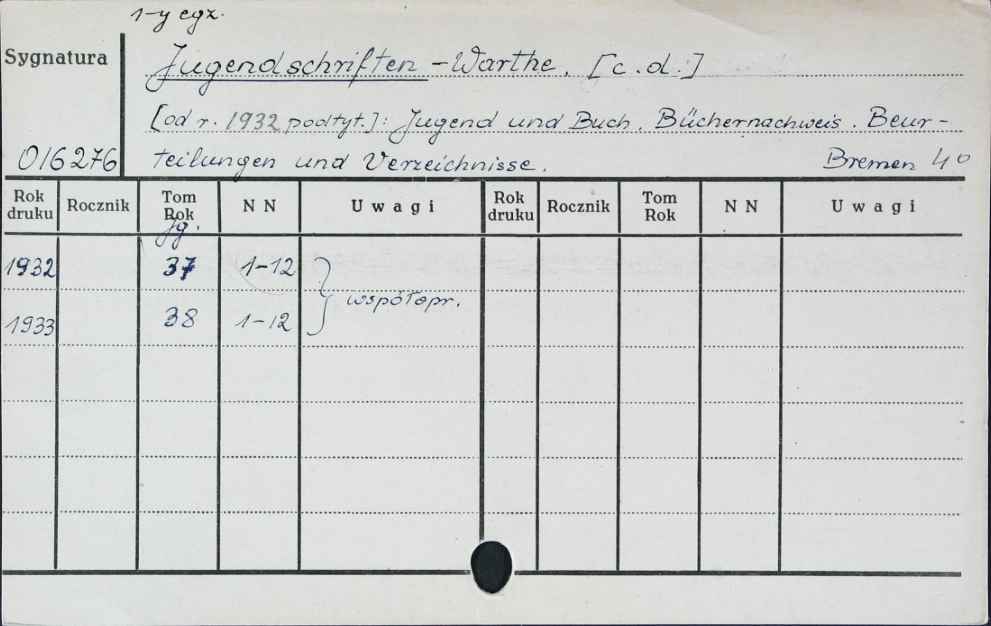 1-y egz.
Sygnatura
Jugendschriften - Warthe. [c.d.]
[od r. 1932 podtyt.]: Jugend und Buch. Büchernachweis. Beur-
016276 teilungen und Verzeichnisse. Bremen 4°
Rok druku Rocznik Tom Rok NN Uwagi Rok druku Rocznik Tom Rok NN Uwagi
Jg.
1932 37 1-12
współopr.
1933 38 1-12